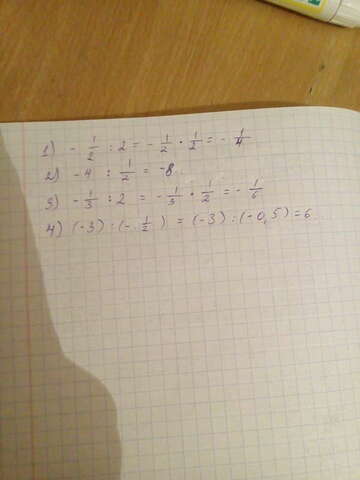 1) - 1/2 : 2 = - 1/2 · 1/2 = - 1/4
2) -4 : 1/2 = -8
3) - 1/3 : 2 = - 1/3 · 1/2 = - 1/6
4) (-3) : (- 1/2) = (-3) : (-0,5) = 6